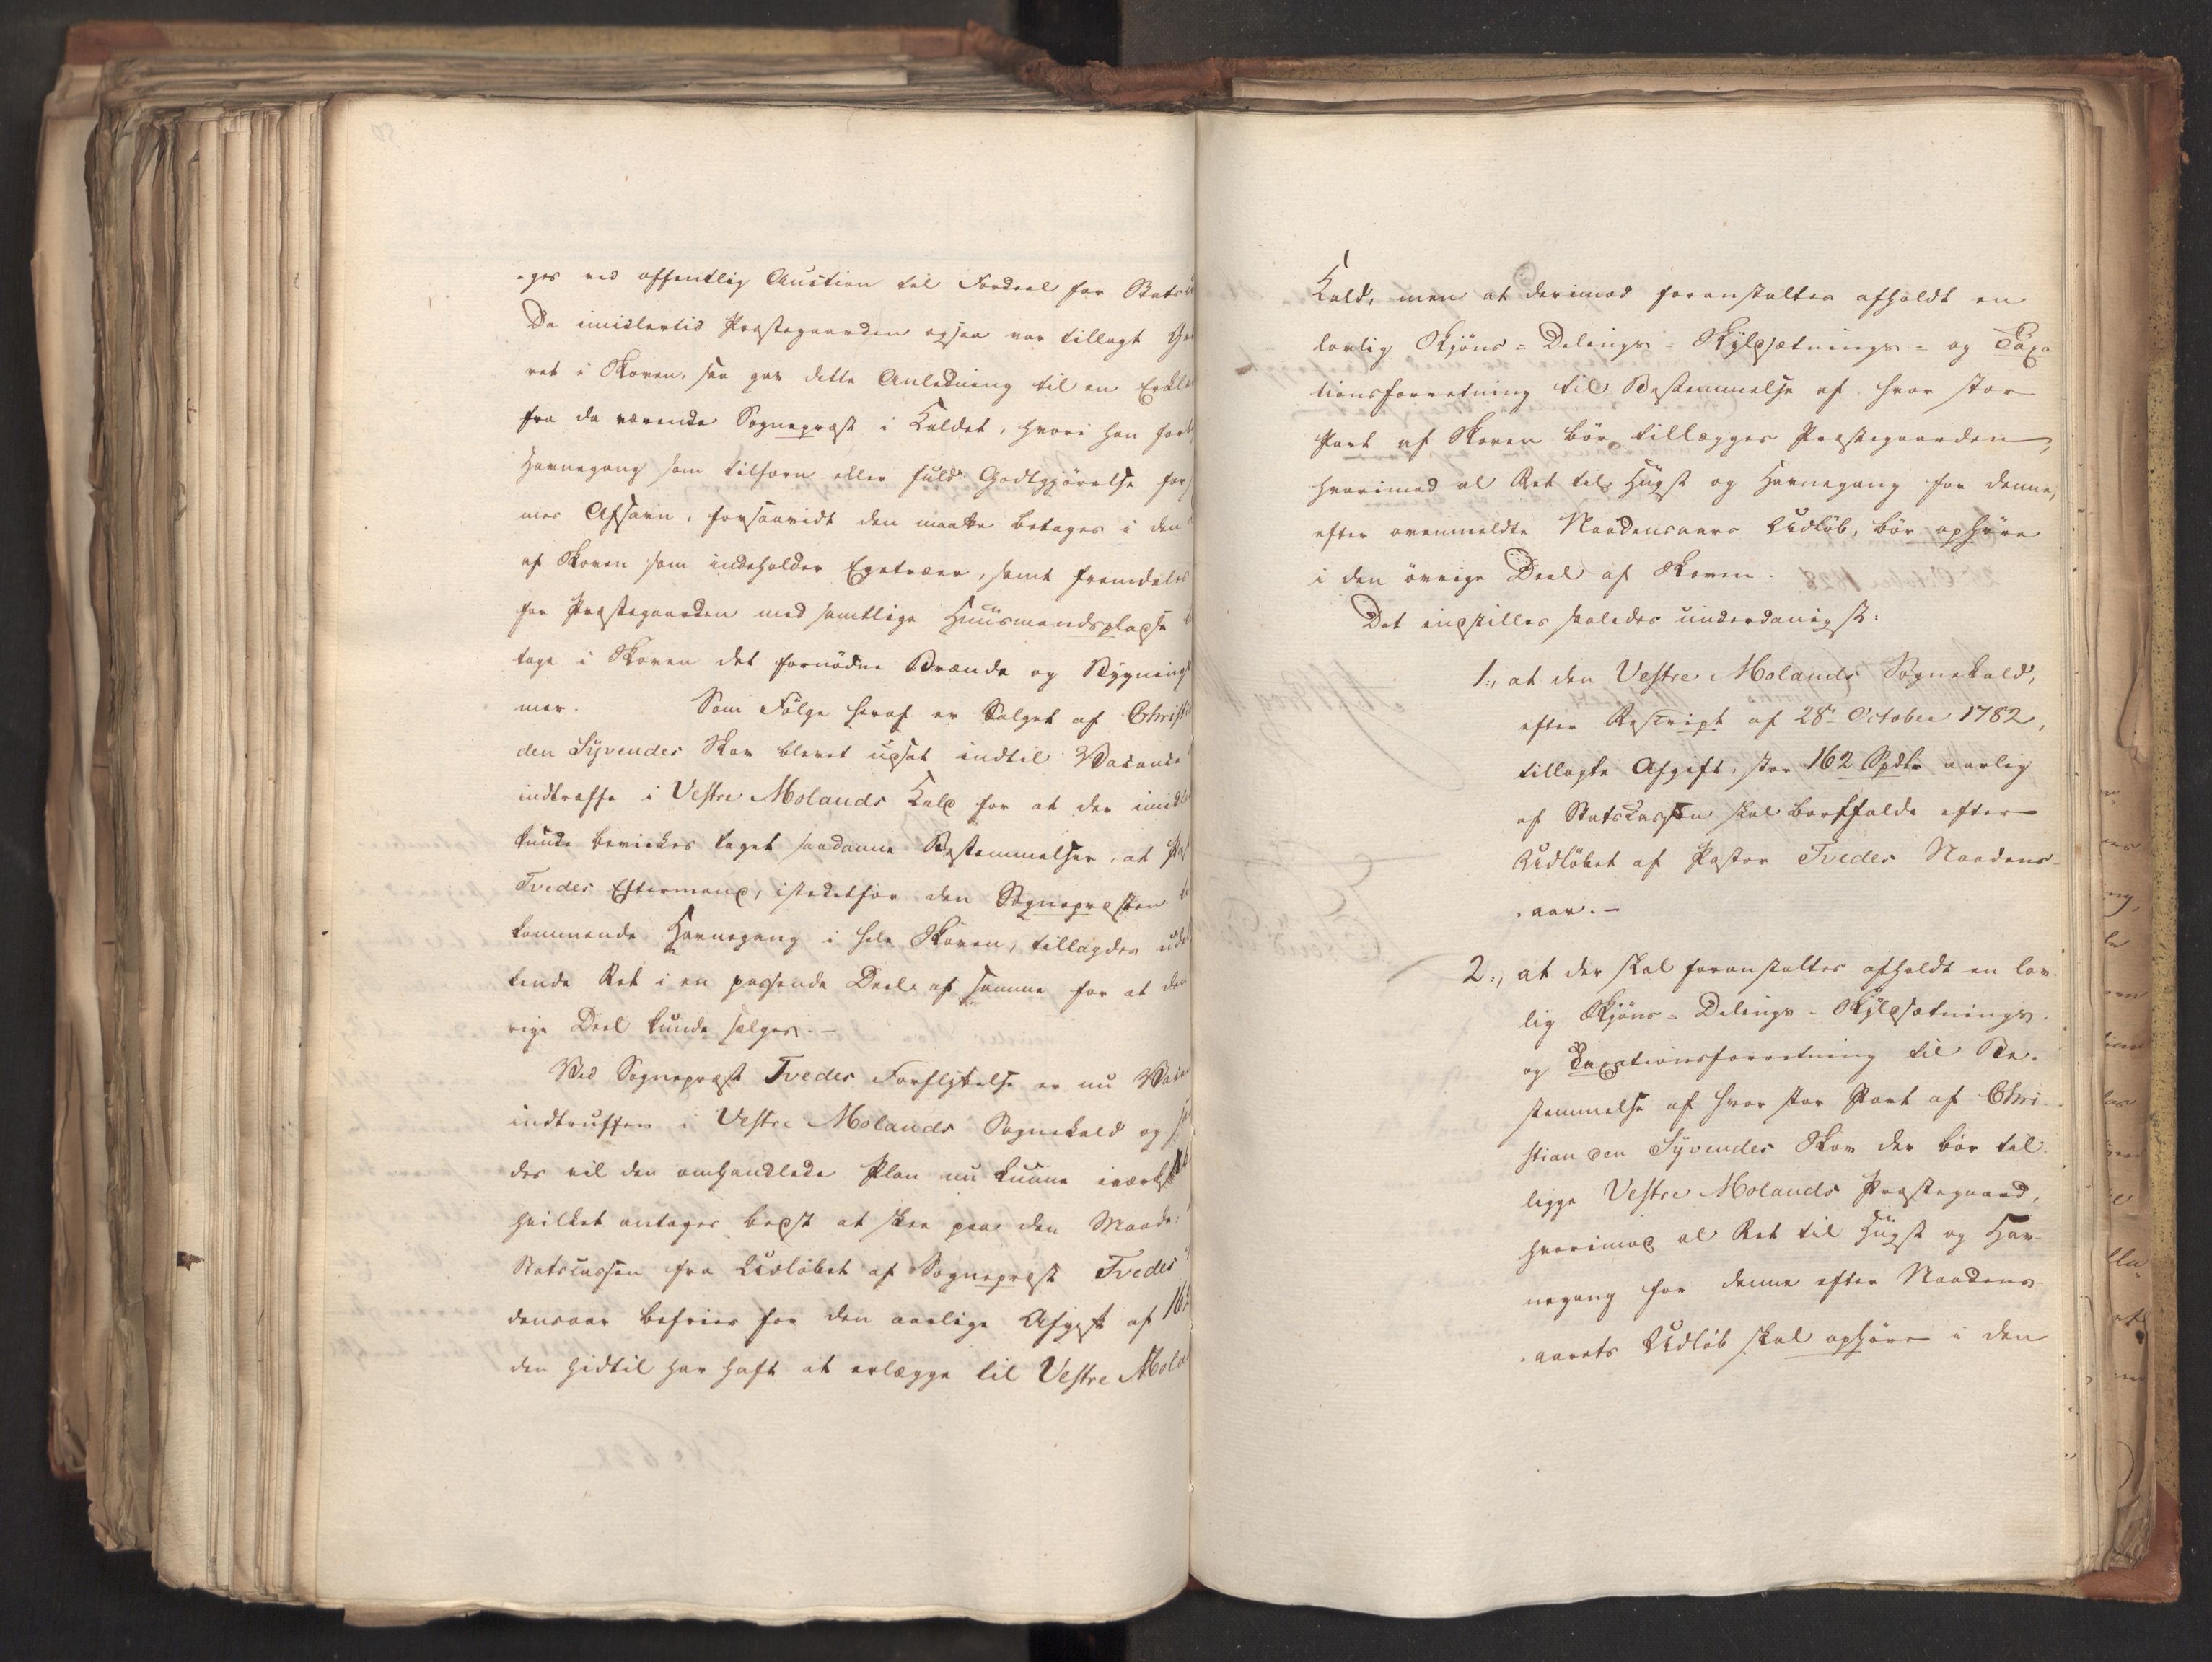 ges ved offentlig Auction til Fordeel for Stats
Da imidlertid Præstegaarden ogsaa var tillagt
ret i Skoven, saa gav dette Anledning til en
fra da værende Sognepræst i Kaldet, hvori han
Havnegang som tilforn eller fuld Godtgjørelse for
mes Afsavn, forsaavidt den maatte betages i den
af Skoven som indeholder Egetræer, samt fremdeles
for Præstegaarden med samtlige Huusmandspladse
tage i Skoven det fornødne Brænde og Bygnings
mer. Som Følge heraf er Salget af Christi
den Syvendes Skov blevet udsat indtil Vacance
indtraffe i Vestre Molands Kald for at der imidler
kunde bevirkes taget saadanne Bestemmelser, at
Tvedes Eftermand, istedetfor den Sognepræsten
kommende Havnegang i hele Skoven, tillagdes
kende Ret i en passende Deel af samme for at den
rige Deel kunde sælges.-
Ved Sognepræst Tvedes Forflyttelse er nu
indtruffen i Vestre Molands Sognekald og
des vil den omhandlede Plan nu kunne iværk
hvilket antages bedst at skee paa den Maade:
Statscassen fra Udløbet af Sognepræst Tvedes
densaar befries for den aarlige Afgift af 162
den hidtil har haft at erlægge til Vestre Mola
Kald, men at derimod foranstaltes afholdt en
lovlig Skjøns- Delings- Skyldsætnings- og Taxa
tionsforretning til Bestemmelse af hvor stor
Part af Skoven bør tillægges Præstegaarden,
hvorimod al Ret til Hugst og Havnegang for denne,
efter ovenmeldte Naadensaars Udløb, bør ophøre
i den øvrige Deel af Skoven.
Det indstilles saaledes underdanigst:
1., at den Vestre Molands Sognekald,
efter Rescript af 28de October 1782,
tillagte Afgift, stor 162 Spdlr aarlig
af Statscassen skal bortfalde efter
Udløbet af Pastor Tvedes Naadens-
aar.-
2., at der skal foranstaltes afholdt en lov-
lig Skjøns- Delings- Skyldsætnings-
og Taxationsforretning til Be-
stemmelse af hvor stor Part af Chri-
stian den Syvendes Skov der bør til-
ligge Vestre Molands Præstegaard,
hvorimod al Ret til Hugst og Hav-
negang for denne efter Naadens-
aarets Udløb skal ophøre i den